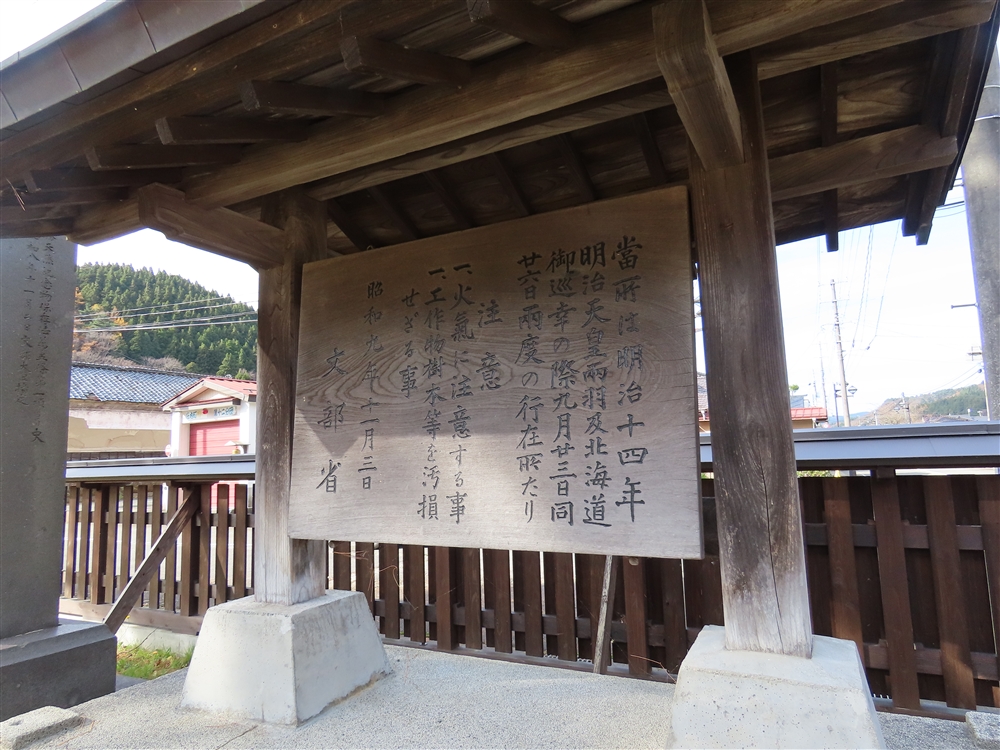 當所は明治十四年
明治天皇兩羽及北海道
御巡幸の際九月廿三日同
廿六日兩度の行在所たり
注意
一、火氣に注意する事
一、工作物樹木等を汚損
せざる事
昭和九年十一月三日
文部省